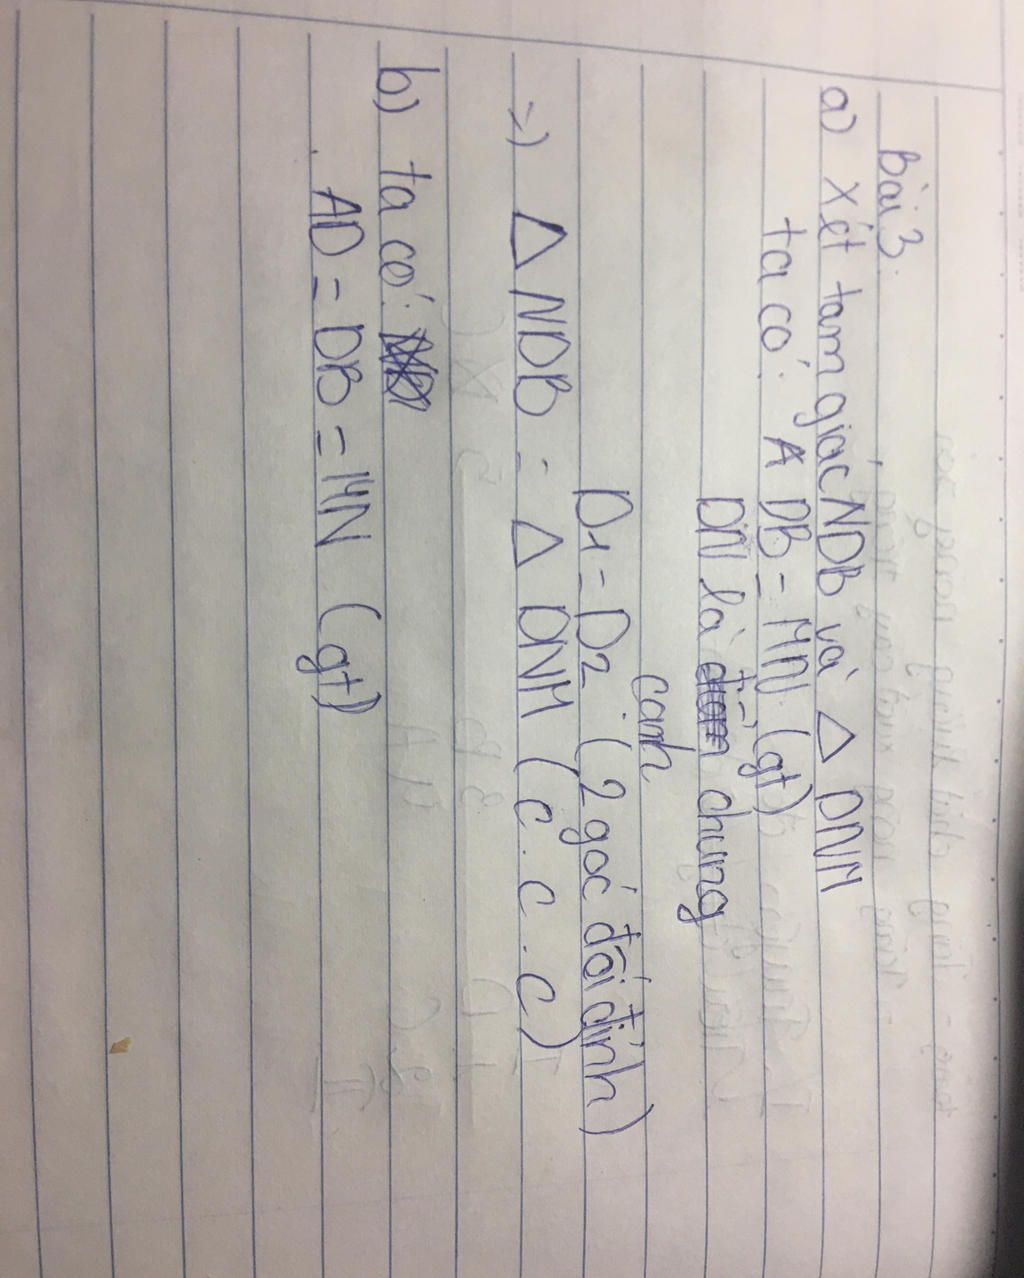 Bài 3.
a) Xét tam giác NDB và △ DNM
ta có: A DB = MN (gt)
DN là chung
cạnh
D1 = D2 (2 góc đối đỉnh)
=) △ NDB = △ DNM (c.c.c)
b) ta có:
AD = DB = MN (gt)